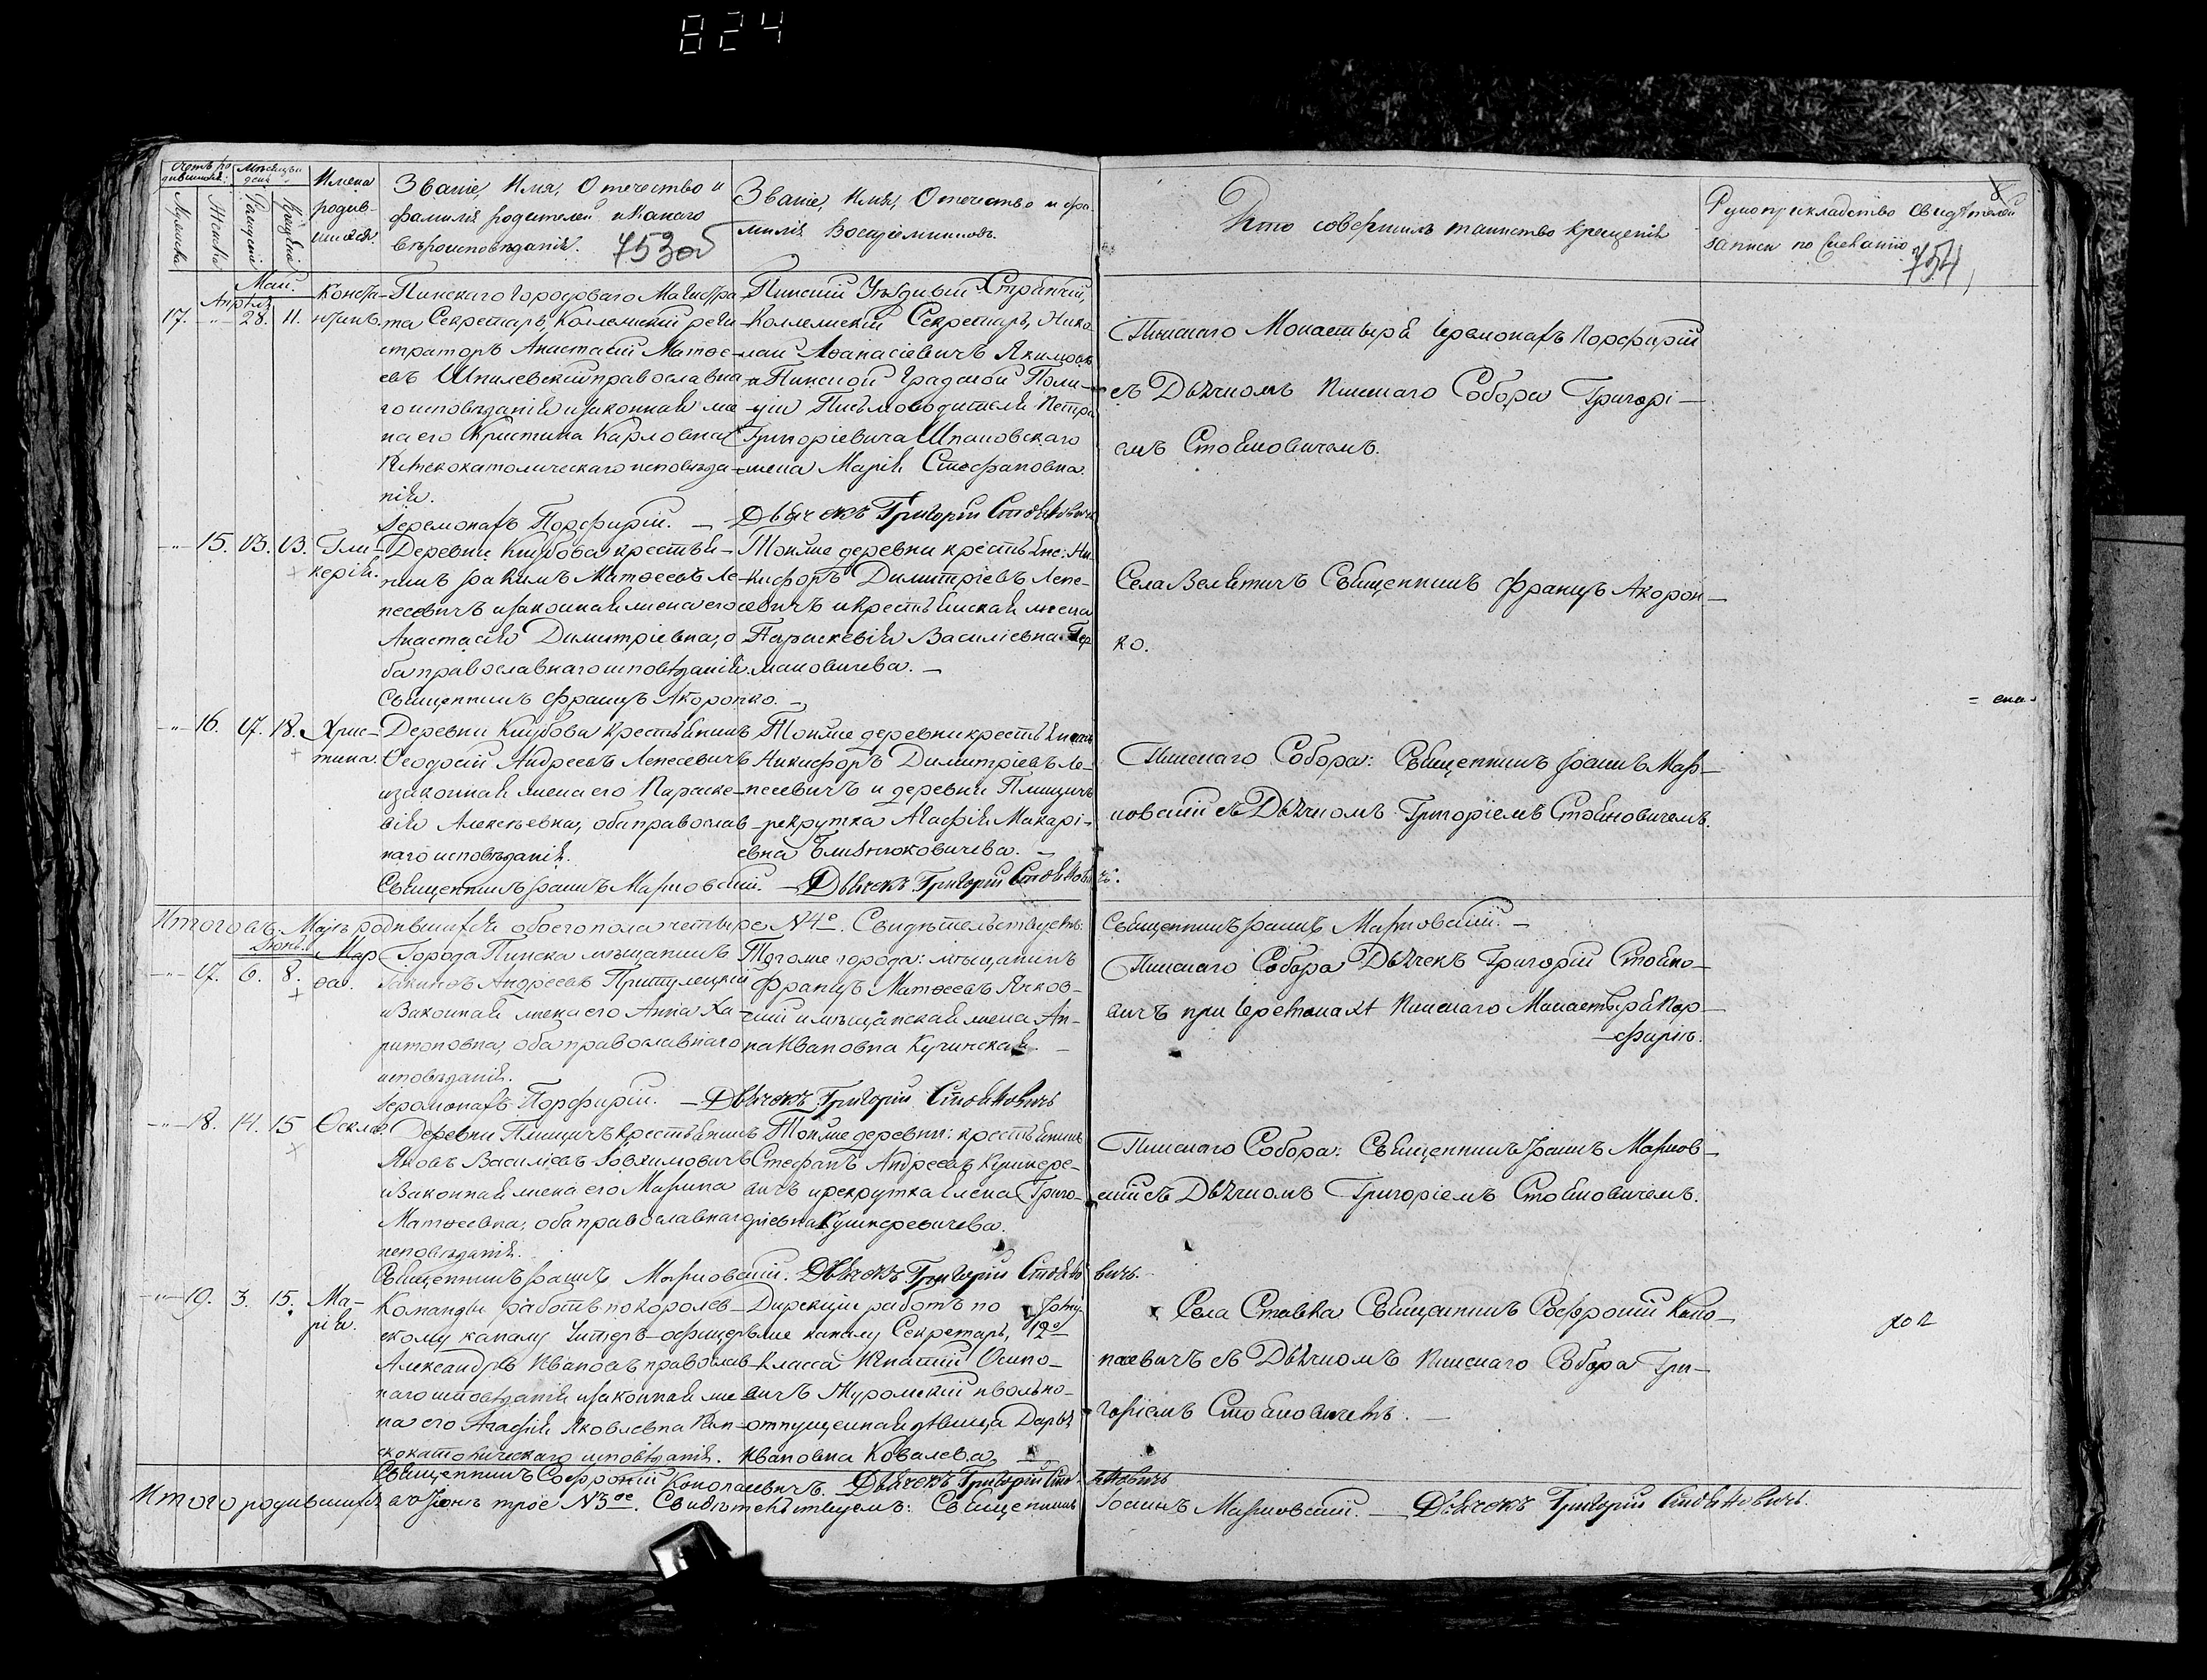 824
Счетъ ро-
дившихся.
Мѣсяцъ и
день
Мужеска
Женска
Рожденія
Крещенія
Имена
родив-
шихся.
Званіе, Имя, Отечество и
фамилія родителей и какого
вѣроисповѣданія.
753об
Званіе, Имя, Отечество и фа-
милія Воспріемниковъ.
Кто совершилъ таинство крещенія
Рукоприкладство Свидѣтелей
записи по желанію
8
754
Май.
Апрѣля
17. -"- 28. 11.
Конста-
нтинъ.
Пинскаго Городоваго Магистра-
та Секретарь, Коллежскій реги-
страторъ Анастасій Матѳе-
евъ Шпилевскій православна-
го исповѣданія и законная же-
на его Кристина Карловна
Римскокатолическаго исповѣда-
нія.
Іеромонахъ Порфирій. —
Пинскій Уѣздный Стряпчій,
Коллежскій Секретарь, Нико-
лай Аѳанасіевичъ Якимовъ
и Пинской Градской Поли-
ціи Письмоводителя Петра
Григоріевича Шпаковскаго
жена Марія Стефановна.
Дьячокъ Григорій Стояновичъ
Пинскаго Монастыря Іеромонахъ Порфирій
съ Дьячкомъ Пинскаго Собора Григорі-
емъ Стояновичемъ.
-"- 15. 13. 13.
Гли-
керія.
Деревни Кнубова крестья-
нинъ Іоакимъ Матѳеевъ Ле-
песевичъ и законная жена его
Анастасія Димитріевна, о-
ба православнаго исповѣданія.
Священникъ Францъ Акоронко. —
Той же деревни крестьяне: Ни-
кифоръ Димитріевъ Лепе-
севичъ и крестьянская жена
Параскевія Василіевна Гер-
мановичева. —
Села Велятичъ Священникъ Францъ Акорон-
ко.
-"- 16. 17. 18.
Хрис-
тина.
Деревни Кнубова Крестьянинъ
Ѳеодосій Андреевъ Лепесевичъ
и законная жена его Параске-
вія Алексѣевна, оба православ-
наго исповѣданія.
Священникъ Іоаннъ Марновскій. —
Той же деревни крестьянинъ
Никифоръ Димитріевъ Ле-
песевичъ и деревни Плищичъ
рекрутка Агафія Макарі-
евна Близнюковичева. —
Дьячокъ Григорій Стоянови
чъ.
Пинскаго Собора: Священникъ Іоаннъ Мар-
новскій съ Дьячкомъ Григоріемъ Стояновичемъ.
= ска-
Итого въ Маѣ родившихся обоего пола четыре N 4о. Свидѣтельствуетъ:
Священникъ Іоаннъ Марновскій. —
Іюнь.
-"- 17. 6. 8.
Мар
ѳа.
Города Пинска мѣщанинъ
Іакинѳъ Андреевъ Притулецкій
и Законная жена его Анна Ха-
ритоновна, оба православнаго
исповѣданія.
Іеромонахъ Порфирій. —
Того же города: мѣщанинъ
Францъ Матѳеевъ Янков-
скій и мѣщанская жена Ан-
на Ивановна Кучинская —
Дьячокъ Григорій Стояновичъ
Пинскаго Собора Дьячекъ Григорій Стояно-
вичъ при Іеромонахѣ Пинскаго Монастыря Пор-
фиріѣ.
-"- 18. 14. 15
Ѳекла
Деревни Плищичъ крестьянинъ
Яковъ Василіевъ Іовхимовичъ
и Законная жена его Марина
Матѳеевна, оба православнаго
исповѣданія.
Священникъ Іоаннъ Марновскій.
Той же деревни: крестьянинъ
Стефанъ Андреевъ Кушнере-
вичъ и рекрутка Елена Григо-
ріевна Кушнеревичева.
Дьячокъ Григорій Стояно
вичъ.
Пинскаго Собора: Священникъ Іоаннъ Марнов-
скій съ Дьячкомъ Григоріемъ Стояновичемъ.
-"- 19. 3. 15.
Ма-
рія.
Команды работъ по королев-
скому каналу Унтеръ-офицеръ
Александръ Ивановъ православ-
наго исповѣданія и законная же-
на его Агафія Яковлевна Рим-
скокатолическаго исповѣданія.
Священникъ Софроній Конопасевичъ.
Дирекціи работъ по тому
же каналу Секретарь, 12о
класса Игнатій Осипо-
вичъ Журомскій и вольно-
отпущенная дѣвица Дарья
Ивановна Ковалева, —
Дьячокъ Григорій Стоя-
новичъ
Села Ставка Священникъ Софроній Коно-
пасевичъ съ Дьячкомъ Пинскаго Собора Гри-
горіемъ Стояновичемъ. —
Итого родившихся въ Іюнѣ трое N 3ое. Свидѣтельствуемъ: Священникъ
Іоаннъ Марновскій. — Дьячокъ Григорій Стояновичъ.